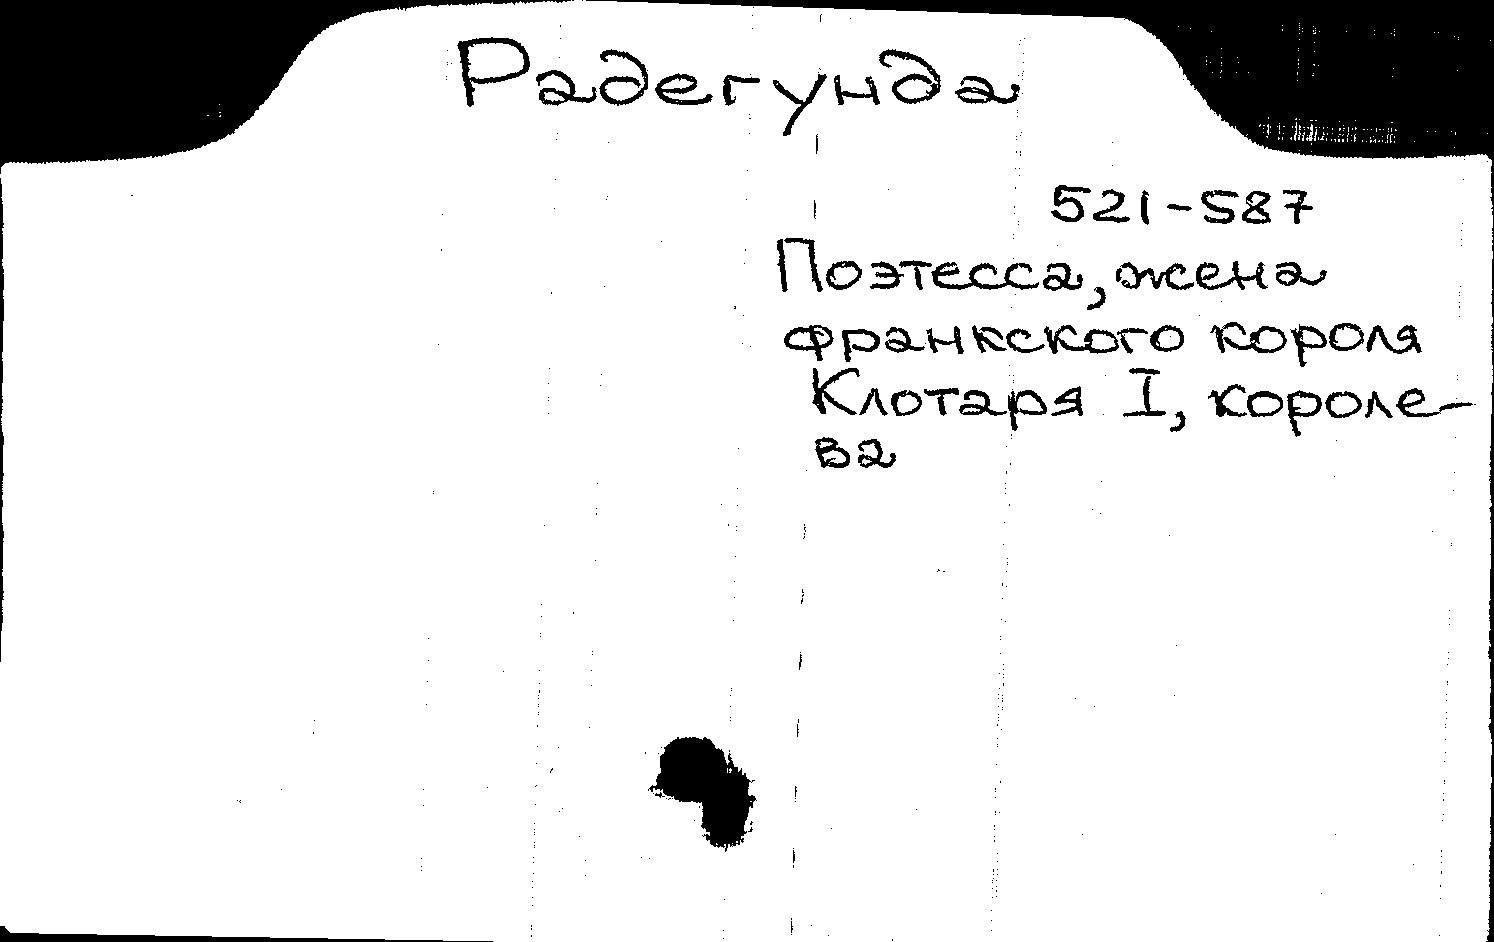 Радегунда
521-587
Поэтесса, жена
франкского короля
Клотаря I, короле-
ва